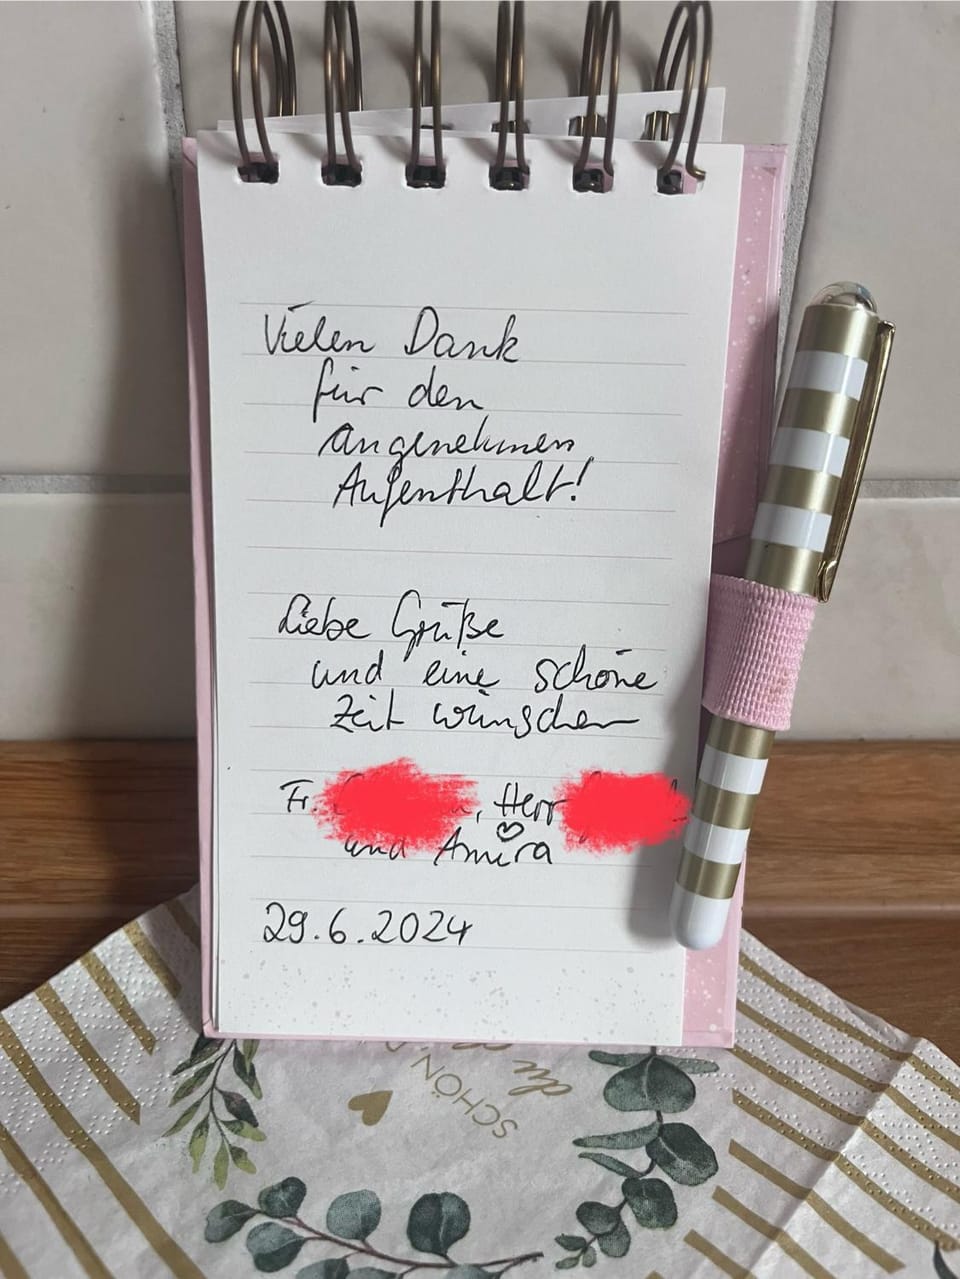 Vielen Dank
für den
angenehmen
Aufenthalt!
Liebe Grüße
und eine schöne
Zeit wünschen
Fr. , Herr
und Amira
29.6.2024
SCHÖN
die